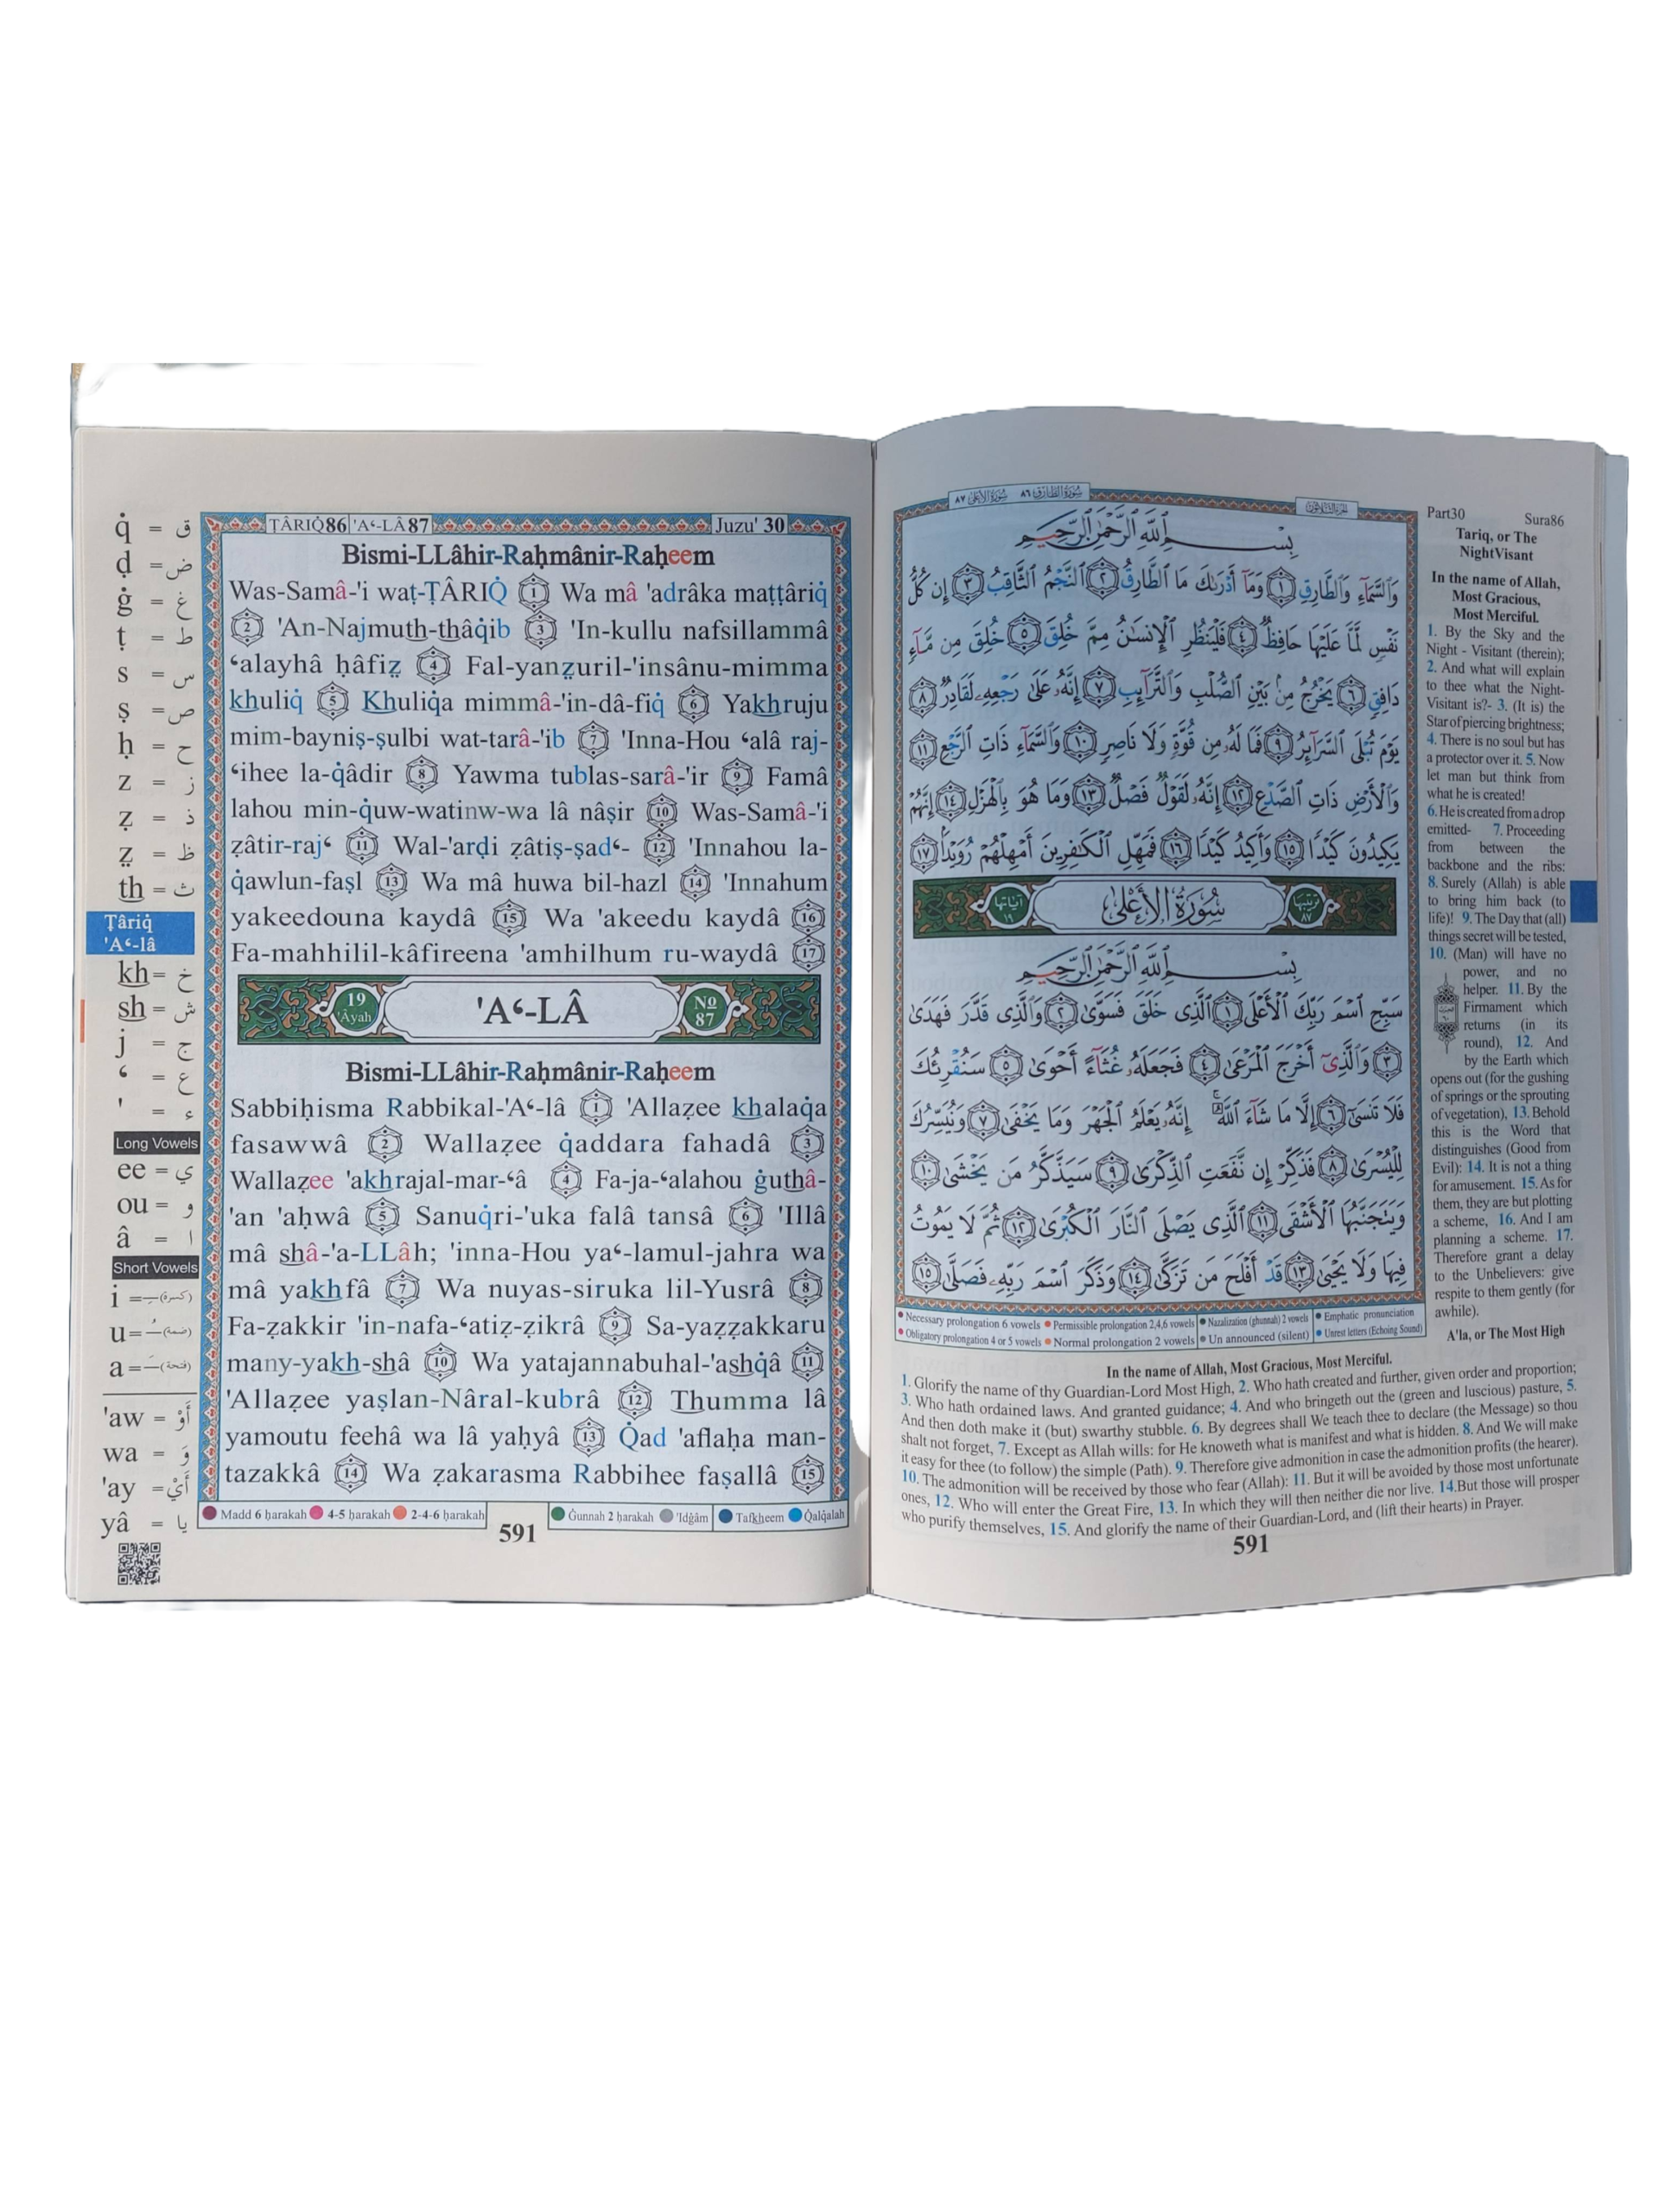 q̇ = ق
ḍ = ض
ġ = غ
ṭ = ط
s = س
ṣ = ص
ḥ = ح
z = ز
ẓ = ذ
Ẓ = ظ
th = ث
Ṭâriq̇
'A‘-lâ
kh = خ
sh = ش
j = ج
‘ = ع
' = ء
Long Vowels
ee = ي
ou = و
â = ا
Short Vowels
i = ـِ (كسرة)
u = ـُ (ضمة)
a = ـَ (فتحة)
'aw = أَوْ
wa = وَ
'ay = أَيْ
yâ = يا
ṬÂRIQ̇86 'A‘-LÂ87 Juzu' 30
Bismi-LLâhir-Raḥmânir-Raḥeem
Was-Samâ-'i waṭ-ṬÂRIQ̇ 1 Wa mâ 'adrâka maṭṭâriq̇
2 'An-Najmuth-thâq̇ib 3 'In-kullu nafsillammâ
‘alayhâ ḥâfiẓ 4 Fal-yanẓuril-'insânu-mimma
khuliq̇ 5 Khuliq̇a mimmâ-'in-dâ-fiq̇ 6 Yakhruju
mim-bayniṣ-ṣulbi wat-tarâ-'ib 7 'Inna-Hou ‘alâ raj-
‘ihee la-q̇âdir 8 Yawma tublas-sarâ-'ir 9 Famâ
lahou min-q̇uw-watinw-wa lâ nâṣir 10 Was-Samâ-'i
ẓâtir-raj‘ 11 Wal-'arḍi ẓâtiṣ-ṣad‘- 12 'Innahou la-
q̇awlun-faṣl 13 Wa mâ huwa bil-hazl 14 'Innahum
yakeedouna kaydâ 15 Wa 'akeedu kaydâ 16
Fa-mahhilil-kâfireena 'amhilhum ru-waydâ 17
19 'Âyah 'A‘-LÂ No 87
Bismi-LLâhir-Raḥmânir-Raḥeem
Sabbiḥisma Rabbikal-'A‘-lâ 1 'Allaẓee khalaq̇a
fasawwâ 2 Wallaẓee q̇addara fahadâ 3
Wallaẓee 'akhrajal-mar-‘â 4 Fa-ja-‘alahou ġuthâ-
'an 'aḥwâ 5 Sanuq̇ri-'uka falâ tansâ 6 'Illâ
mâ shâ-'a-LLâh; 'inna-Hou ya‘-lamul-jahra wa
mâ yakhfâ 7 Wa nuyas-siruka lil-Yusrâ 8
Fa-ẓakkir 'in-nafa-‘atiẓ-ẓikrâ 9 Sa-yaẓẓakkaru
many-yakh-shâ 10 Wa yatajannabuhal-'ashq̇â 11
'Allaẓee yaṣlan-Nâral-kubrâ 12 Thumma lâ
yamoutu feehâ wa lâ yaḥyâ 13 Q̇ad 'aflaḥa man-
tazakkâ 14 Wa ẓakarasma Rabbihee faṣallâ 15
Madd 6 ḥarakah 4-5 ḥarakah 2-4-6 ḥarakah Ġunnah 2 ḥarakah 'Idġâm Tafkheem Q̇alq̇alah
591
سُورَةُ الأَعْلَى ٨٧ سُورَةُ الطَّارِق ٨٦ الجزء الثلاثون
بِسْمِ ٱللَّهِ ٱلرَّحْمَٰنِ ٱلرَّحِيمِ
وَٱلسَّمَآءِ وَٱلطَّارِقِ ١ وَمَآ أَدْرَىٰكَ مَا ٱلطَّارِقُ ٢ ٱلنَّجْمُ ٱلثَّاقِبُ ٣ إِن كُلُّ
نَفْسٍ لَّمَّا عَلَيْهَا حَافِظٌ ٤ فَلْيَنظُرِ ٱلْإِنسَٰنُ مِمَّ خُلِقَ ٥ خُلِقَ مِن مَّآءٍ
دَافِقٍ ٦ يَخْرُجُ مِنۢ بَيْنِ ٱلصُّلْبِ وَٱلتَّرَآئِبِ ٧ إِنَّهُۥ عَلَىٰ رَجْعِهِۦ لَقَادِرٌ ٨
يَوْمَ تُبْلَى ٱلسَّرَآئِرُ ٩ فَمَا لَهُۥ مِن قُوَّةٍ وَلَا نَاصِرٍ ١٠ وَٱلسَّمَآءِ ذَاتِ ٱلرَّجْعِ ١١
وَٱلْأَرْضِ ذَاتِ ٱلصَّدْعِ ١٢ إِنَّهُۥ لَقَوْلٌ فَصْلٌ ١٣ وَمَا هُوَ بِٱلْهَزْلِ ١٤ إِنَّهُمْ
يَكِيدُونَ كَيْدًا ١٥ وَأَكِيدُ كَيْدًا ١٦ فَمَهِّلِ ٱلْكَٰفِرِينَ أَمْهِلْهُمْ رُوَيْدًۢا ١٧
ترتيبها ٨٧ سُورَةُ الأَعْلَى آياتها ١٩
بِسْمِ ٱللَّهِ ٱلرَّحْمَٰنِ ٱلرَّحِيمِ
سَبِّحِ ٱسْمَ رَبِّكَ ٱلْأَعْلَى ١ ٱلَّذِى خَلَقَ فَسَوَّىٰ ٢ وَٱلَّذِى قَدَّرَ فَهَدَىٰ
٣ وَٱلَّذِىٓ أَخْرَجَ ٱلْمَرْعَىٰ ٤ فَجَعَلَهُۥ غُثَآءً أَحْوَىٰ ٥ سَنُقْرِئُكَ
فَلَا تَنسَىٰٓ ٦ إِلَّا مَا شَآءَ ٱللَّهُ ۚ إِنَّهُۥ يَعْلَمُ ٱلْجَهْرَ وَمَا يَخْفَىٰ ٧ وَنُيَسِّرُكَ
لِلْيُسْرَىٰ ٨ فَذَكِّرْ إِن نَّفَعَتِ ٱلذِّكْرَىٰ ٩ سَيَذَّكَّرُ مَن يَخْشَىٰ ١٠
وَيَتَجَنَّبُهَا ٱلْأَشْقَى ١١ ٱلَّذِى يَصْلَى ٱلنَّارَ ٱلْكُبْرَىٰ ١٢ ثُمَّ لَا يَمُوتُ
فِيهَا وَلَا يَحْيَىٰ ١٣ قَدْ أَفْلَحَ مَن تَزَكَّىٰ ١٤ وَذَكَرَ ٱسْمَ رَبِّهِۦ فَصَلَّىٰ ١٥
Necessary prolongation 6 vowels Permissible prolongation 2,4,6 vowels Nazalization (ghunnah) 2 vowels Emphatic pronunciation
Obligatory prolongation 4 or 5 vowels Normal prolongation 2 vowels Un announced (silent) Unrest letters (Echoing Sound)
Part30 Sura86
Tariq, or The
NightVisant
In the name of Allah,
Most Gracious,
Most Merciful.
1. By the Sky and the
Night - Visitant (therein);
2. And what will explain
to thee what the Night-
Visitant is?- 3. (It is) the
Star of piercing brightness;
4. There is no soul but has
a protector over it. 5. Now
let man but think from
what he is created!
6. He is created from a drop
emitted- 7. Proceeding
from between the
backbone and the ribs:
8. Surely (Allah) is able
to bring him back (to
life)! 9. The Day that (all)
things secret will be tested,
10. (Man) will have no
power, and no
helper. 11. By the
Firmament which
returns (in its
round), 12. And
by the Earth which
opens out (for the gushing
of springs or the sprouting
of vegetation), 13. Behold
this is the Word that
distinguishes (Good from
Evil): 14. It is not a thing
for amusement. 15. As for
them, they are but plotting
a scheme, 16. And I am
planning a scheme. 17.
Therefore grant a delay
to the Unbelievers: give
respite to them gently (for
awhile).
A'la, or The Most High
In the name of Allah, Most Gracious, Most Merciful.
1. Glorify the name of thy Guardian-Lord Most High, 2. Who hath created and further, given order and proportion;
3. Who hath ordained laws. And granted guidance; 4. And who bringeth out the (green and luscious) pasture, 5.
And then doth make it (but) swarthy stubble. 6. By degrees shall We teach thee to declare (the Message) so thou
shalt not forget, 7. Except as Allah wills: for He knoweth what is manifest and what is hidden. 8. And We will make
it easy for thee (to follow) the simple (Path). 9. Therefore give admonition in case the admonition profits (the hearer).
10. The admonition will be received by those who fear (Allah): 11. But it will be avoided by those most unfortunate
ones, 12. Who will enter the Great Fire, 13. In which they will then neither die nor live. 14.But those will prosper
who purify themselves, 15. And glorify the name of their Guardian-Lord, and (lift their hearts) in Prayer.
591